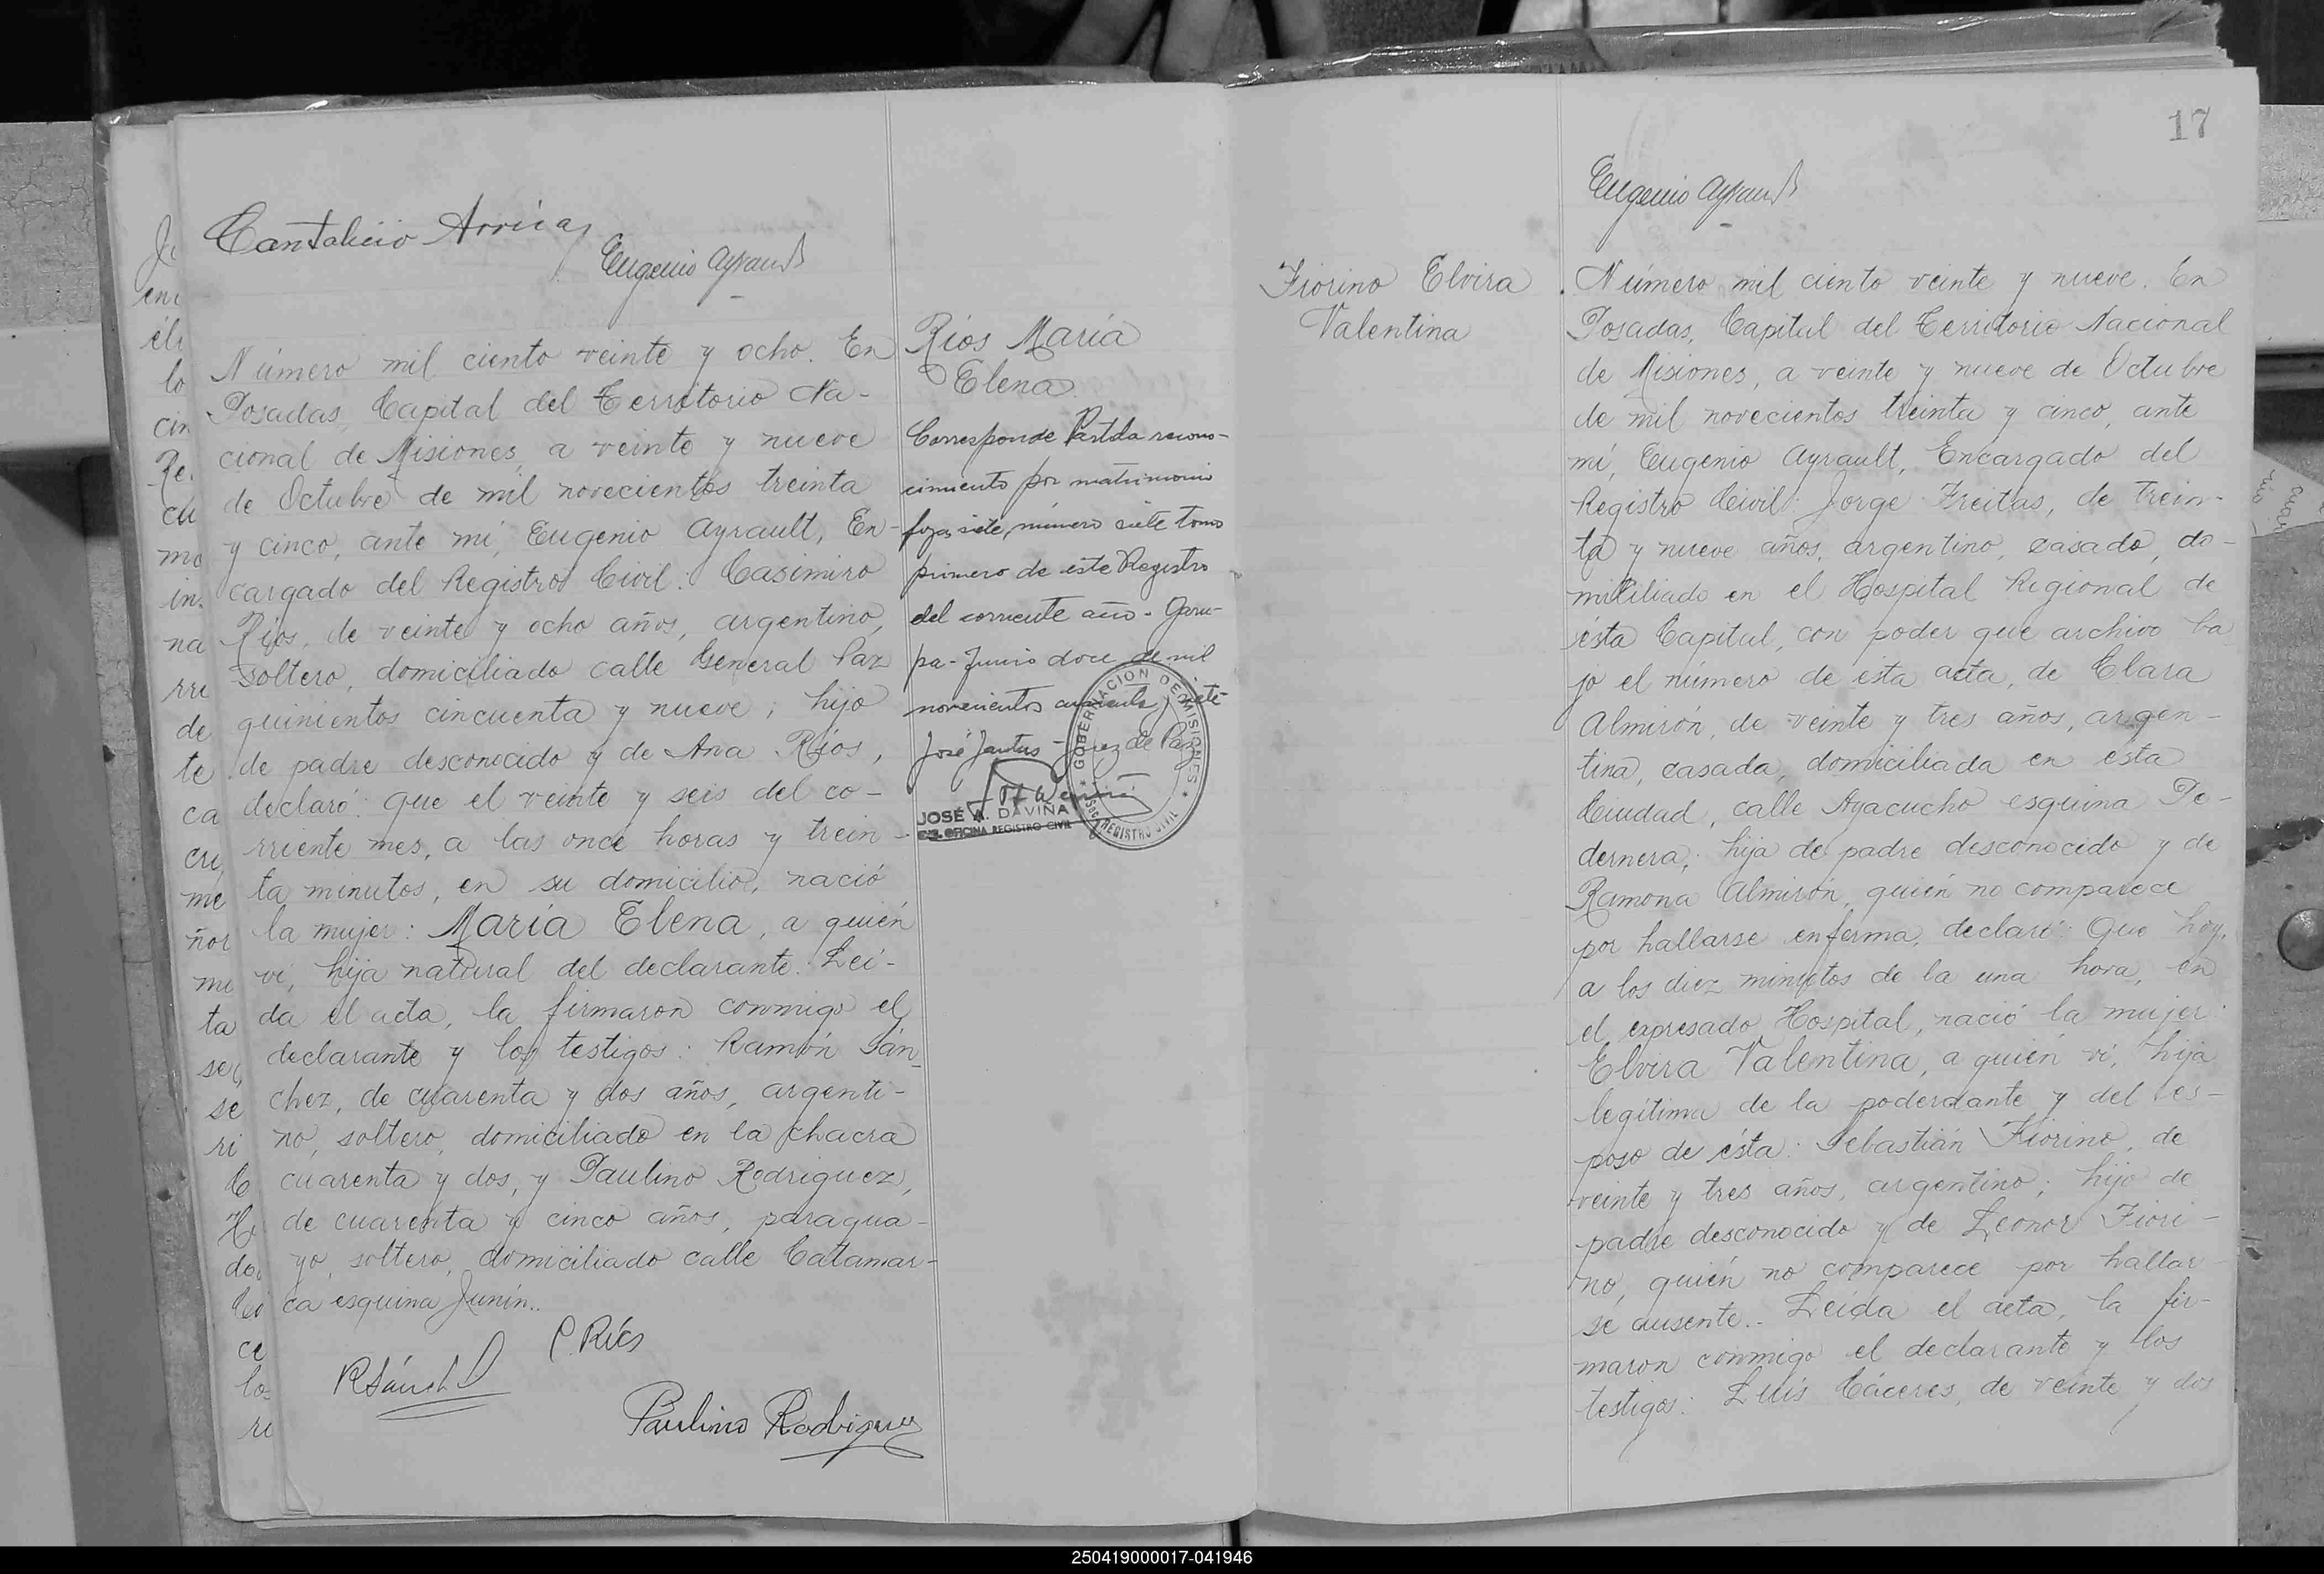 Cantalicio Arrúa
Eugenio Ayrault
Número mil ciento veinte y ocho. En
Posadas, Capital del Territorio Na-
cional de Misiones, a veinte y nueve
de Octubre de mil novecientos treinta
y cinco, ante mí, Eugenio Ayrault, En-
cargado del Registro Civil: Casimiro
Ríos, de veinte y ocho años, argentino,
soltero, domiciliado calle General Paz
quinientos cincuenta y nueve; hijo
de padre desconocido y de Ana Ríos,
declaró: Que el veinte y seis del co-
rriente mes, a las once horas y trein-
ta minutos, en su domicilio, nació
la mujer: María Elena, a quién
ví, hija natural del declarante. Leí-
da el acta, la firmaron conmigo el
declarante y los testigos: Ramón Sán-
chez, de cuarenta y dos años, argenti-
no, soltero, domiciliado en la chacra
cuarenta y dos, y Paulino Rodriguez,
de cuarenta y cinco años, paragua-
yo, soltero, domiciliado calle Catamar-
ca esquina Junín..
C. Ríos
R Sánchez
Paulino Rodriguez
Ríos María
Elena
Corresponde Partida recono-
cimiento por matrimonio
foja siete, número siete tomo
primero de este Registro
del corriente año. Garu-
pa - Junio doce de mil
novecientos cuarenta y siete
José Jantus - Juez de Paz
GOBERNACION DE MISIONES
REGISTRO CIVIL
JOSÉ A. DAVIÑA
OFICINA REGISTRO CIVIL
17
Eugenio Ayrault
Fiorino Elvira
Valentina
Número mil ciento veinte y nueve. En
Posadas, Capital del Territorio Nacional
de Misiones, a veinte y nueve de Octubre
de mil novecientos treinta y cinco, ante
mí, Eugenio Ayrault, Encargado del
Registro Civil: Jorge Freitas, de trein-
ta y nueve años, argentino, casado, do-
miciliado en el Hospital Regional de
ésta Capital, con poder que archivo ba
jo el número de esta acta, de Clara
Almirón, de veinte y tres años, argen-
tina, casada, domiciliada en ésta
Ciudad, calle Ayacucho esquina Pe-
dernera; hija de padre desconocido y de
Ramona Almirón, quién no comparece
por hallarse enferma, declaró: Que hoy,
a los diez minutos de la una hora, en
el expresado Hospital, nació la mujer:
Elvira Valentina, a quién ví, hija
legítima de la poderdante y del es-
poso de ésta: Sebastián Fiorino, de
veinte y tres años, argentino; hijo de
padre desconocido y de Leonor Fiori-
no, quién no comparece por hallar-
se ausente.. Leída el acta, la fir-
maron conmigo el declarante y los
testigos: Luis Cáceres, de veinte y dos
250419000017-041946